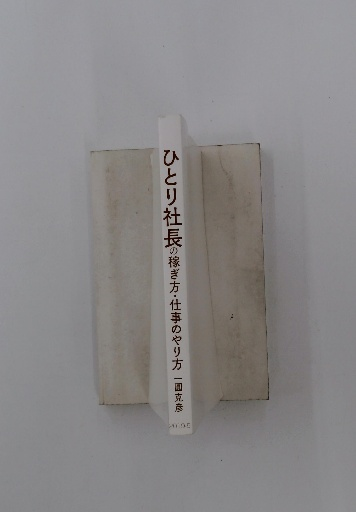 ひとり社長の稼ぎ方・仕事のやり方 一圓克彦